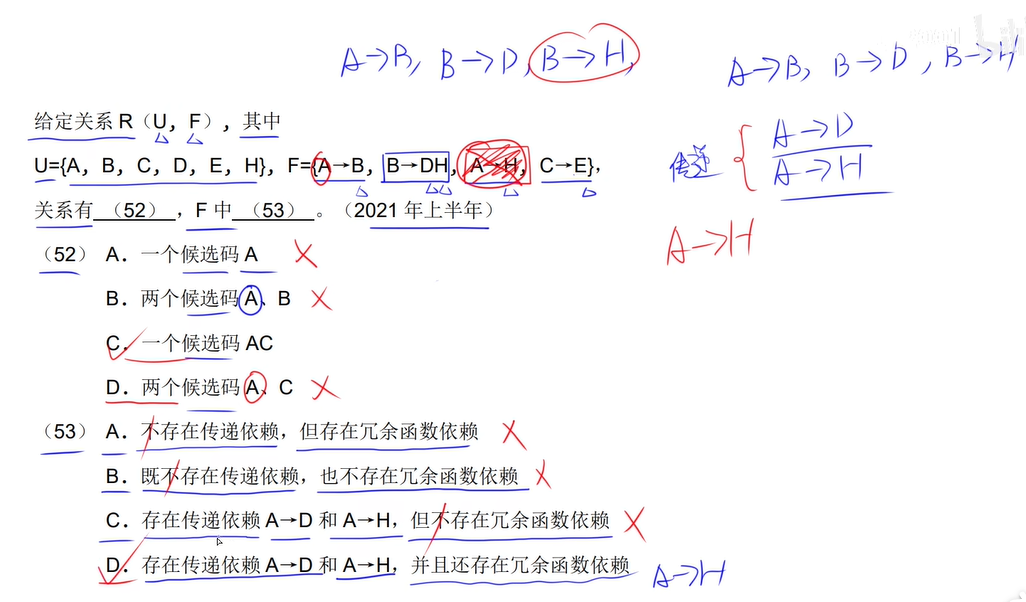 A→B, B→D, B→H,
A→B, B→D, B→H
给定关系 R（U，F），其中
U={A，B，C，D，E，H}，F={A→B，B→DH，A→H，C→E}，
关系有（52），F 中（53）。（2021 年上半年）
传递 { A→D
A→H
A→H
（52） A．一个候选码 A ×
B．两个候选码 A、B ×
C．一个候选码 AC
D．两个候选码 A、C ×
（53） A．不存在传递依赖，但存在冗余函数依赖 ×
B．既不存在传递依赖，也不存在冗余函数依赖 ×
C．存在传递依赖 A→D 和 A→H，但不存在冗余函数依赖 ×
D．存在传递依赖 A→D 和 A→H，并且还存在冗余函数依赖 A→H